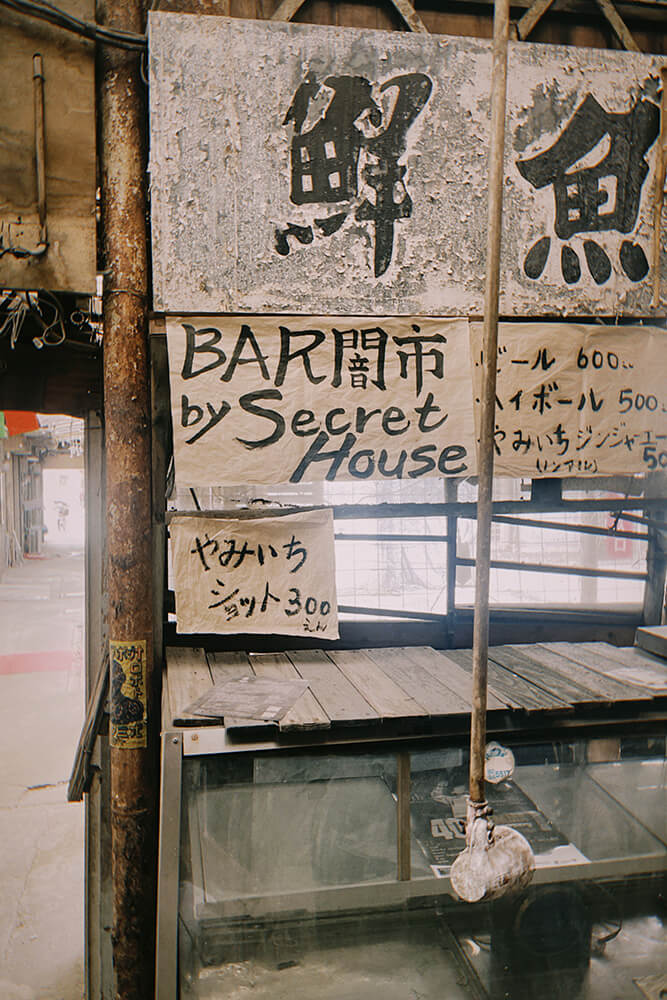 鮮魚
BAR闇市
by Secret
House
ビール 600
ハイボール 500
やみいちジンジャエール
(ノンアル)
やみいち
ショット 300
えん